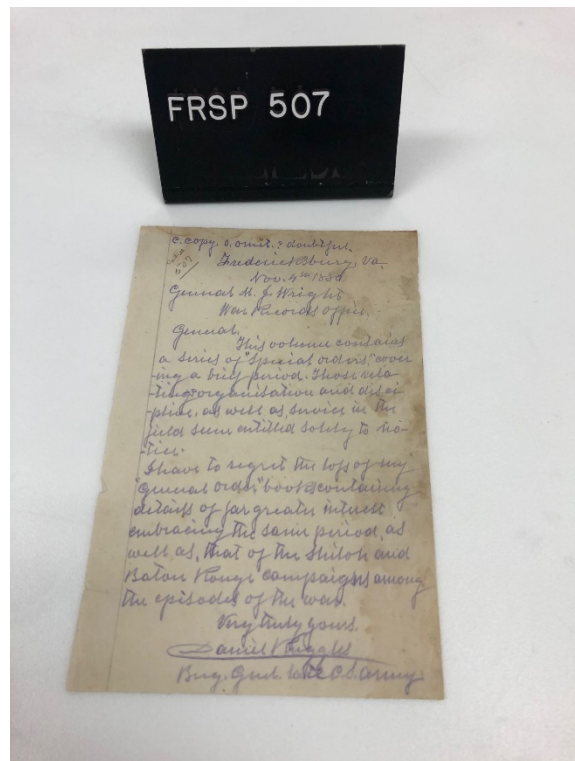 FRSP 507
c. copy. o. omit. ? doubtful.
507
Fredericksburg, Va.
Nov. 4th
General M. J. Wright
War Records Office
General,
This volume contains
a series of "Special orders," cover
-ing a brief period. Those rela
-ting organisation and disci
-pline, as well as, service in the
field seem entitled solely to no-
-tice.
I have to regret the loss of my
"General order" books containing
details of far greater interest
embracing the same period, as
well as, that of the Shiloh and
Baton Rouge campaigns among
the episodes of the war.
Very truly yours.
Daniel Ruggles
Brig. Genl. late C.S. Army